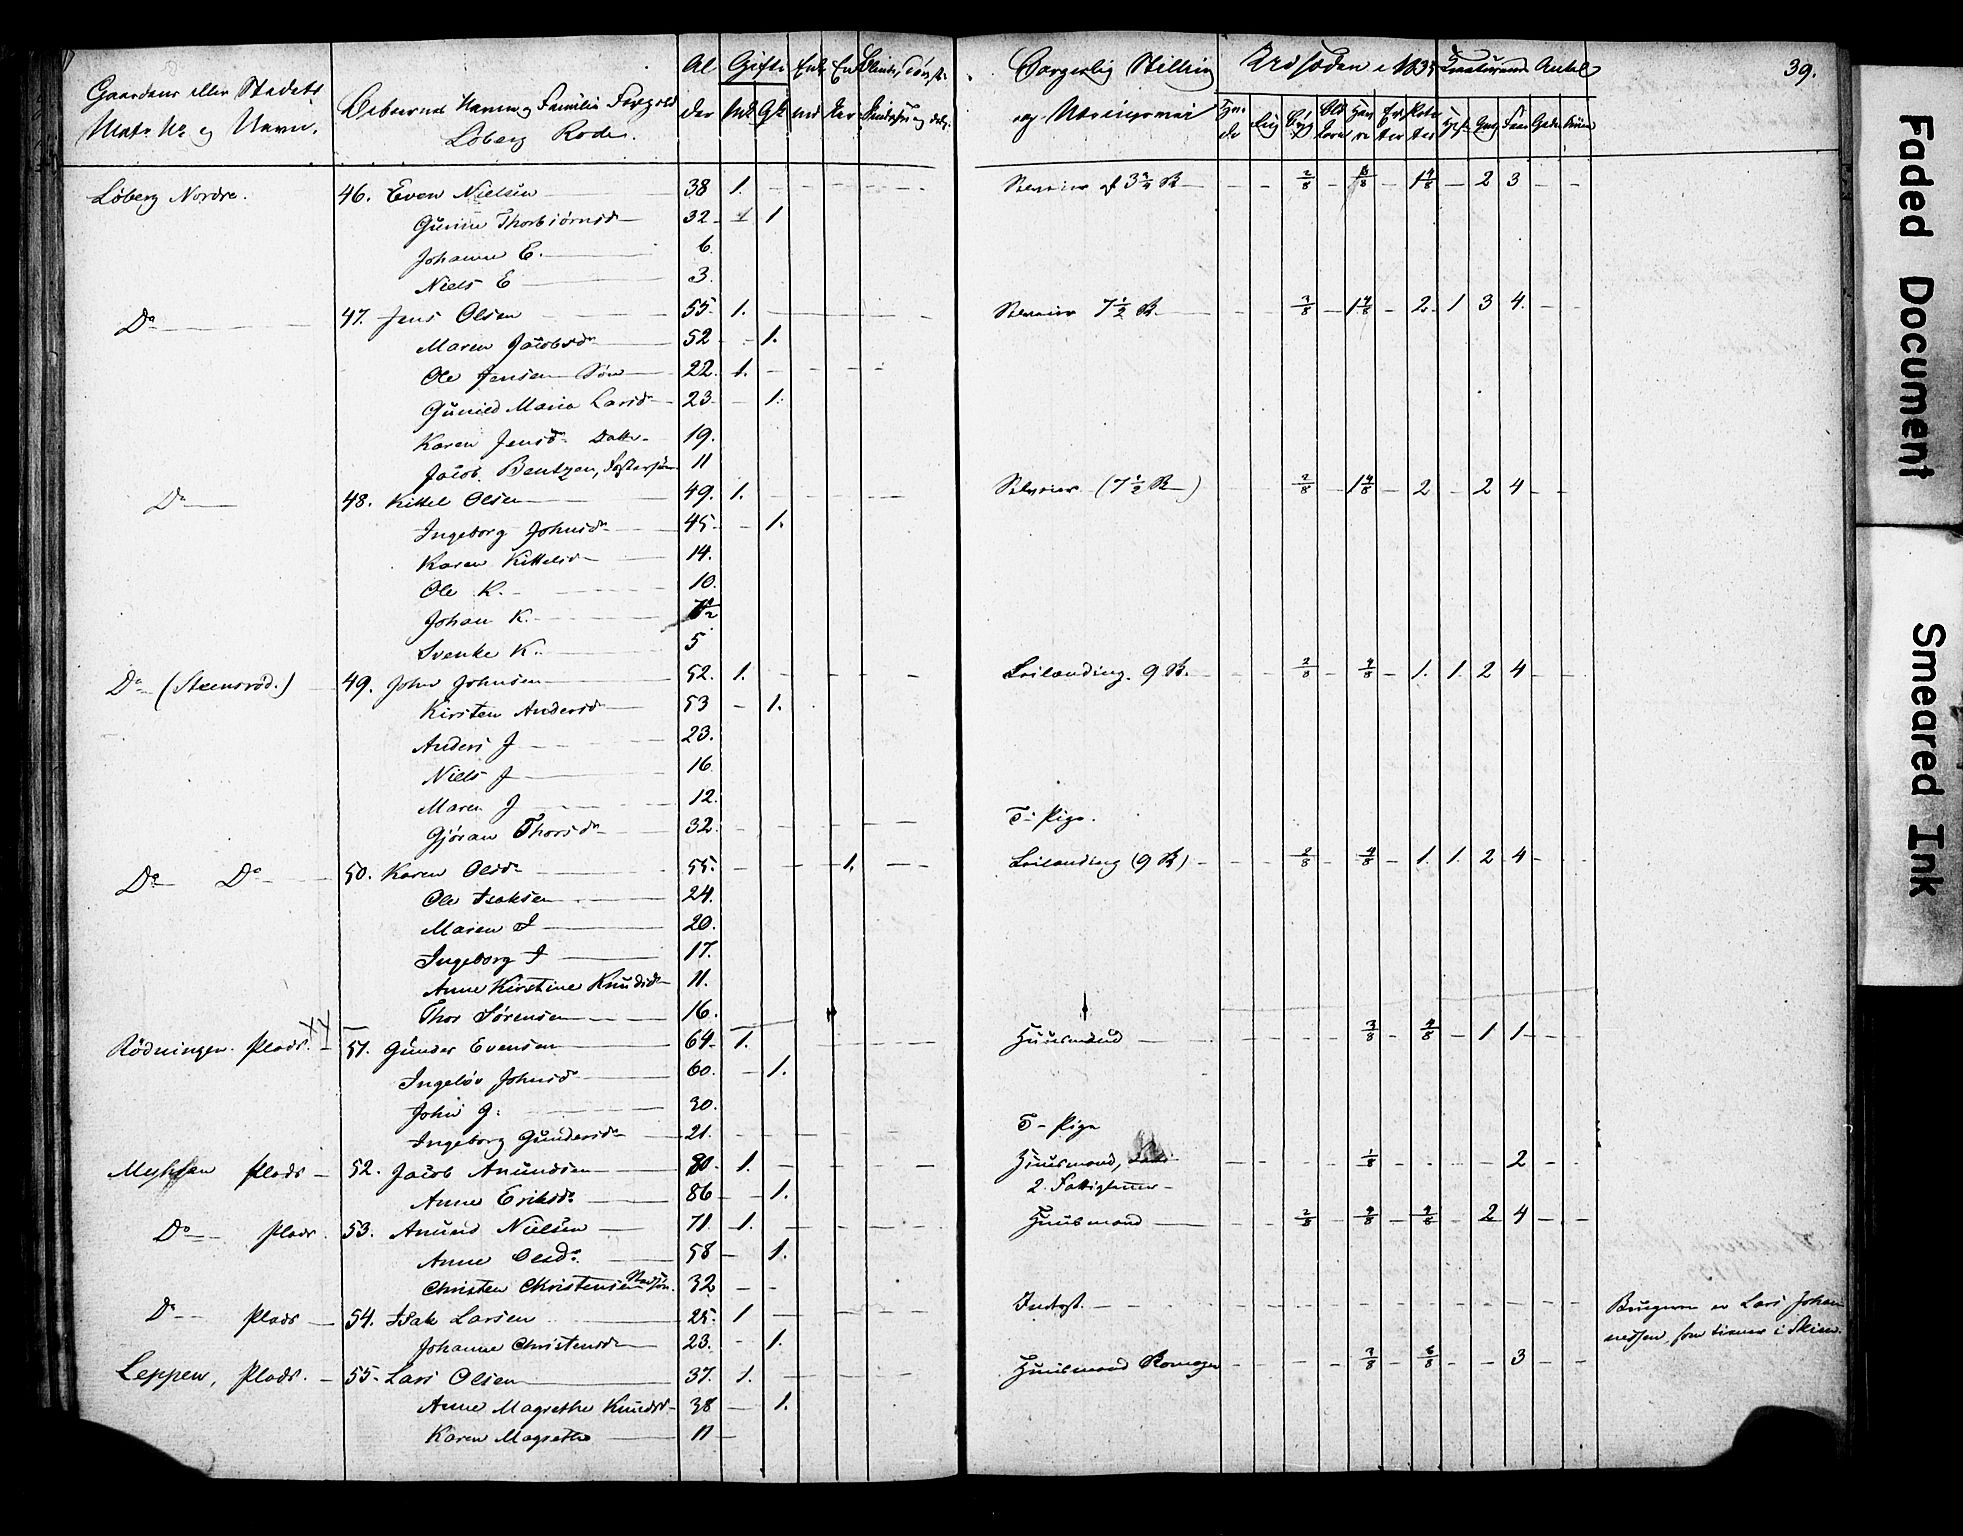 39.
Gaardens eller Stedets Matr. Nr og Navn.
Beboernes Navn og Familie Forhold
Løberg Rode.
Alder
Gifte
Mk. Qk.
Borgerlig Stilling og Næringsvei
Udsæden i 1835
Kreaturenes Antal
Løberg Nordre. 46. Even Nielsen 38 1. Selveier af 3 3/4 R 2/8 1 4/8 2 3
Gunne Thorbiørnsd 32 1
Johanne E. 6
Niels E 3.
Do 47. Jens Olsen 55. 1. Selveier 7 1/2 R. 3/8 1 4/8 2 1 3 4
Maren Jacobsdr 52 1.
Ole Jensen Søn 22. 1.
Gunild Maria Larsd 23 1.
Karen Jensdr Datter 19.
Jacob Bentzen, Fostersøn 11
Do 48. Kittel Olsen 49. 1. Selveier (7 1/2 R) 2/8 1 4/8 2 2 4
Ingeborg Johnsdr 45 1.
Karen Kittelsd 14.
Ole K. 10.
Johan K.
Svenke K. 5
Do (Steensrød.) 49. John Johnsen 52. 1. Leilænding. 9 R. 2/8 4/8 1. 1. 2 4
Kirsten Andersd 53 1.
Anders J 23.
Niels J 16
Maren J 12.
Gjøran Thorsdr 32. T- Pige.
Do Do 50. Karen Olsdr 55. 1. Leilænding (9 R) 2/8 4/8 1. 1. 2 4
Ole Isaksen 24.
Maren I 20.
Ingeborg I 17.
Anne Kirstine Knudsd 11.
Thor Sørensen 16.
Rødningen. Plads. 51. Gunder Evensen 64. 1. Huusmand 3/8 4/8 1 1
Ingebør Johnsd 60. 1.
John G. 30.
Ingeborg Gundersdr 21. T- Pige
Plads 52. Jacob Amundsen 80. 1. Huusmand, 1/8 2
Anne Eriksdr 86 1. 2. Fattiglemmer
Do Plads. 53. Amund Nielsen 71. 1. Huusmand 2/8 4/8 4/8 2 4
Anne Olsdr 58 1.
Christen Christensen Stedsøn. 32
Do Plads 54. Isak Larsen 25. 1 Inderst. Brugeren er Lars Johannessen, som tiener i Skien.
Johanne Christensdr 23. 1.
Leppen, Plads. 55. Lars Olsen 37. 1. Huusmand Skomager 3/8 6/8 3
Anne Magrethe Knudsd 38 1.
Karen Magrethe 11
Faded Document
Smeared Ink